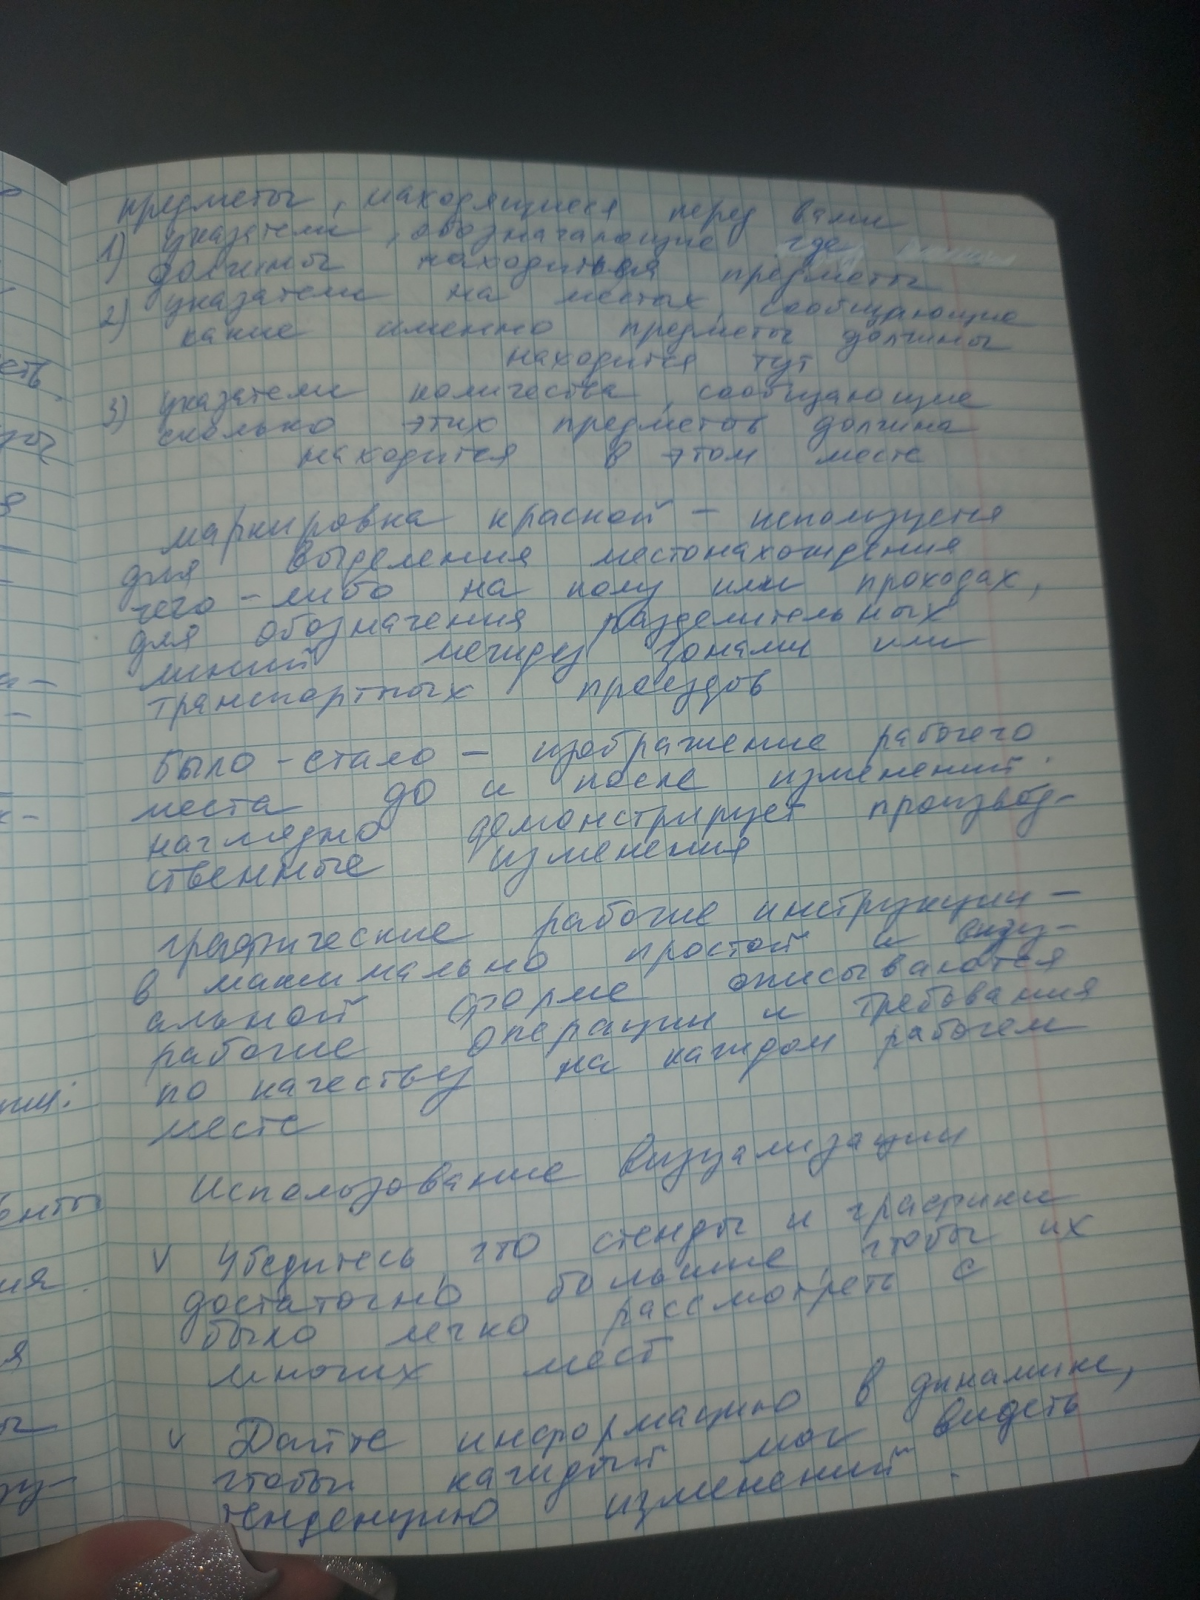 предметы, находящиеся перед вами
1) указатели, обозначающие где
должны находиться предметы
2) указатели на местах, сообщающие
какие именно предметы должны
находится тут
3) указатели количества, сообщающие
сколько этих предметов должна
находится в этом месте
маркировка краской – используется
для выделения местонахождения
чего-либо на полу или проходах,
для обозначения разделительных
линий между зонами или
транспортных проездов
было-стало – изображение рабочего
места до и после изменений.
наглядно демонстрирует производ-
ственные изменения
графические рабочие инструкции –
в максимально простой и визу-
альной форме описываются
рабочие операции и требования
по качеству на каждом рабочем
месте
Использование визуализации
v Убедитесь, что стенды и графики
достаточно большие, чтобы их
было легко рассмотреть с
многих мест
v Дайте информацию в динамике,
чтобы каждый мог видеть
тенденцию изменений.
есть
ия